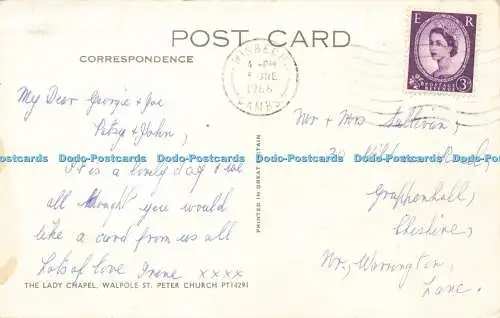 POST CARD
CORRESPONDENCE
WISBECH
4-PM
JNE
1966
CAMBS
E R
POSTAGE
REVENUE
3D
My Dear Georgie & Joe
Patsy & John,
It is a lovely day & we
all thought you would
like a card from us all
Lots of love Irene xxxx
THE LADY CHAPEL, WALPOLE ST. PETER CHURCH PT14291
PRINTED IN GREAT BRITAIN
Mr & Mrs Sullivan,
30
Grappenhall,
Cheshire,
Nr, Warrington,
Lanc.
Dodo-Postcards Dodo-Postcards Dodo-Postcards Dodo-Postcards Dodo-Postcards